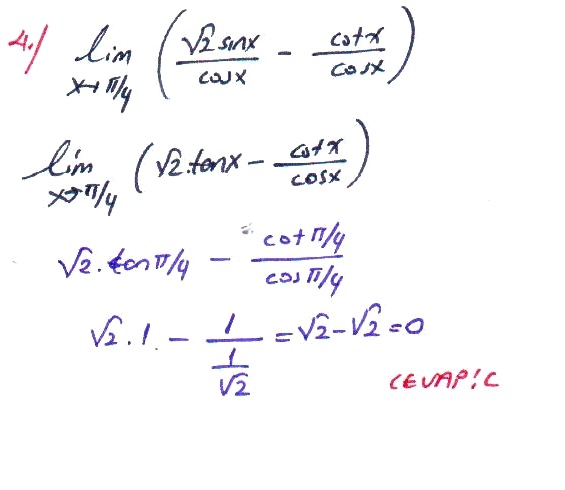 4.) lim x→π/4 ( √2 sinx / cosx − cotx / cosx )
lim x→π/4 ( √2.tanx − cotx / cosx )
√2. tan π/4 − cot π/4 / cos π/4
√2 . 1 − 1 / (1 / √2) = √2 − √2 = 0
CEVAP: C